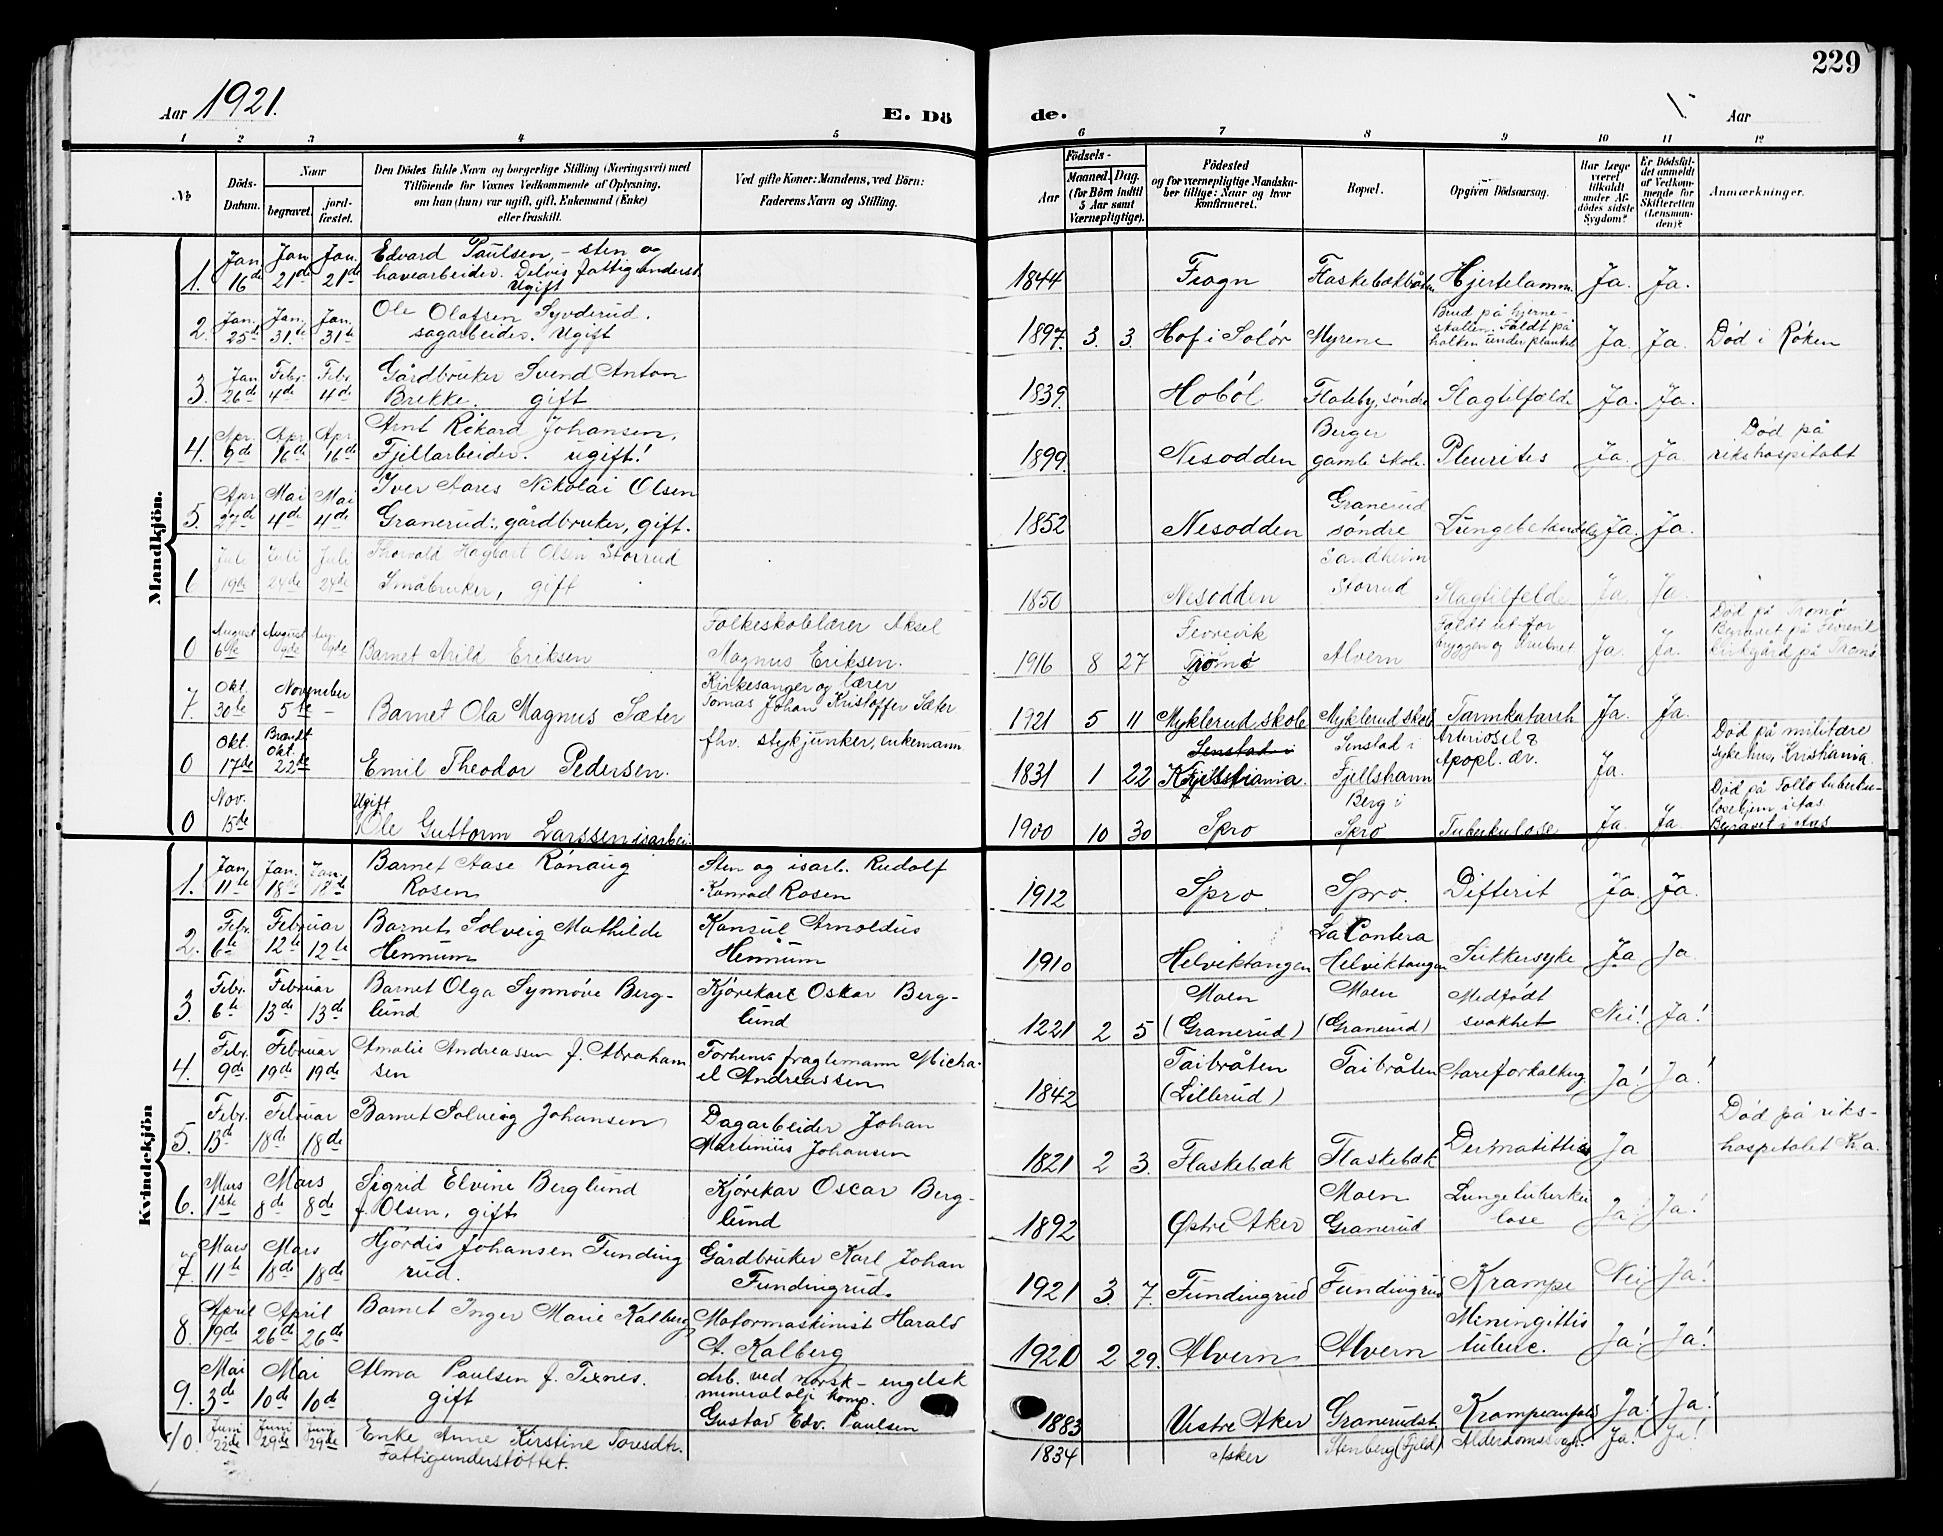 229
Aar 1921.
E. Dö
de.
Aar
1 2 3 4 5 6 7 8 9 10 11 12
No
Döds-Datum.
Naar
begravet.
jord-fæstet.
Den Dödes fulde Navn og borgerlige Stilling (Næringsvei) med
Tilföiende for Voxnes Vedkommende af Oplysning,
om hun (hun) var ugift, gift, Enkemand (Enke)
eller fraskilt.
Ved gifte Koner: Mandens, ved Börn:
Faderens Navn og Stilling.
Födsels-
Aar
Maaned. Dag.
(for Börn indtil
5 Aar samt
Værnepligtige).
Födested
og for værnepligtige Mandska-
ber tillige: Naar og hvor
konfirmeret.
Bopæl.
Opgiven Dödsaarsag.
Har Læge
været
tilkaldt
under Af-
dödes sidste
Sygdom?
Er Dödsfal-
det anmeldt
af Vedkom-
mende for
Skifteretten
(Lensman-
den)?
Anmærkninger.
Mandkjön.
1. Jan 16de Jan 21de Jan. 21de Edvard Paulsen, - sten og
havearbeider. Delvis fattigunderst.
Ugift
1844 Frogn Flaskebækbråten Hjertelamm. Ja. Ja.
2. Jan. 25de Jan. 31te Jan. 31te Ole Olafsen Syvderud.
sagarbeider. Ugift
1897. 3. 3. Hof i Solør Myrene Brud på hjerne-
skallen. Faldt på
holken under planket Ja. Ja. Død i Røken
3. Jan 26de Febr. 4de Febr. 4de Gårdbruker Svend Anton
Brekke. gift
1839. Hobøl Flateby, søndre Slagtilfælde Ja. Ja.
4. Apr. 9de Apr 16de Apr 16de Arnt Rikard Johansen,
Fjellarbeider. ugift!
1899. Nesodden Berger
gamle skole. Pleurites Ja. Ja Død på
rikshospitalet
5. Apr 27de Mai 4de Mai 4de Iver Aares Nikolai Olsen
Granerud:, gårdbruker, gift.
1852 Nesodden Granerud
søndre Lungebetændelse Ja. Ja.
6 Juli 19de Juli 24de Juli 24de Thorvald Hagbart Olsen Storrud
Småbruker, gift
1850 Nesodden Sandheim
Storrud Slagtilfelde Ja. Ja.
0 August 6te August 9de Aug. 9de Barnet Arild Eriksen Folkeskolelærer Aksel
Magnus Eriksen.
1916 8 27 Fevrevik
Tromø Alvern Faldt ut for
bryggen og druknet Ja. Ja. Død på Tromø
Begravet på Fevrevik
kirkegård på Tromø
7. Okt 30te November 5te - Barnet Ola Magnus Sæter Kirkesanger og lærer
Tomas Johan Kristoffer Sæter
1921 5 11 Myklerud skole Myklerud skole Tarmkatarrh Ja. Ja.
0 Okt. 17de Brændt Okt. 22de Emil Theodor Pedersen. fhv. stykjunker, enkemann
1831 1 22 Senstad i
Kristiania. Senstad i
Fjellstrann Arteriosel &
Apopl. ær. Ja. Død på militære
sykehus, Kristiania
0 Nov. 15de Ugift
Ole Guttorm Larssen isarbei.
1900 10 30 Spro Berg i
Spro Tuberkulose Ja. Ja. Død på Follo tuberku-
losehjem i Aas.
Begravet i Aas
Kvindekjön
1. Jan. 11te Jan. 18te Jan. 18te Barnet Aase Rønaug
Rosen Sten og isarb. Rudolf
Konrad Rosen
1912 Spro. Spro. Difterit Ja. Ja.
2. Febr. 6te Februar 12te 12te Barnet Solveig Mathilde
Hennum Konsul Arnoldus
Hennum
1910 Helviktangen La Contera
Helviktangen Sukkersyke Ja Ja
3. Febr. 6te Februar 13de 13de Barnet Olga Synnøve Berg-
lund Kjørekarl Oskar Berg-
lund
1221 2 5 Moen
(Granerud) Moen
(Granerud) Medfødt
svakhet Nei! Ja!
4. Febr. 9de Februar 19de 19de Amalie Andreassen f. Abraham
sen Forhenv. fraglemann Micha-
el Andreassen
1842 Taibråten
(Lillerud) Taibråten Aareforkalkng. Ja! Ja!
5. Febr. 13de Februar 18de 18de Barnet Solveig Johansen Dagarbeider Johan
Martinius Johansen
1821 2 3. Flaskebæk Flaskebæk Dermatittis Ja Død på riks-
hospitalet Kr.a.
6. Mars 1ste Mars 8de 8de Sigrid Elvine Berglund
f. Olsen, gift Kjørekar Oscar Berg-
lund
1892 Østre Aker Moen
Granerud Lungetuberku
lose Ja! Ja!
7 Mars 11te Mars 18de 18de Hjørdis Johansen Funding
rud. Gårdbruker Karl Johan
Fundingrud.
1921 3. 7. Fundingrud Fundingrud Krampe Nei Ja!
8. April 19de April 26de 26de Barnet Inger Marie Kalberg Motormaskinist Harald
A. Kalberg
1920 2 29. Alvern Alvern Miningittis
tuberc. Ja! Ja!
9. Mai 3de Mai 10de 10de Alma Paulsen f. Texnes.
gift Arb. ved norsk-engelsk
mineralolje komp.
Gustav Edv. Paulsen
1883 Vestre Aker Granerudst. Krampeanfald Ja! Ja!
10. Juni 22de Juni 29de Juni 29de Enke Anne Kirstine Toresdtr.
Fattigunderstøttet.
1834 Asker Stenberg (Fjeld) Alderdomssvagh. Ja! Ja!